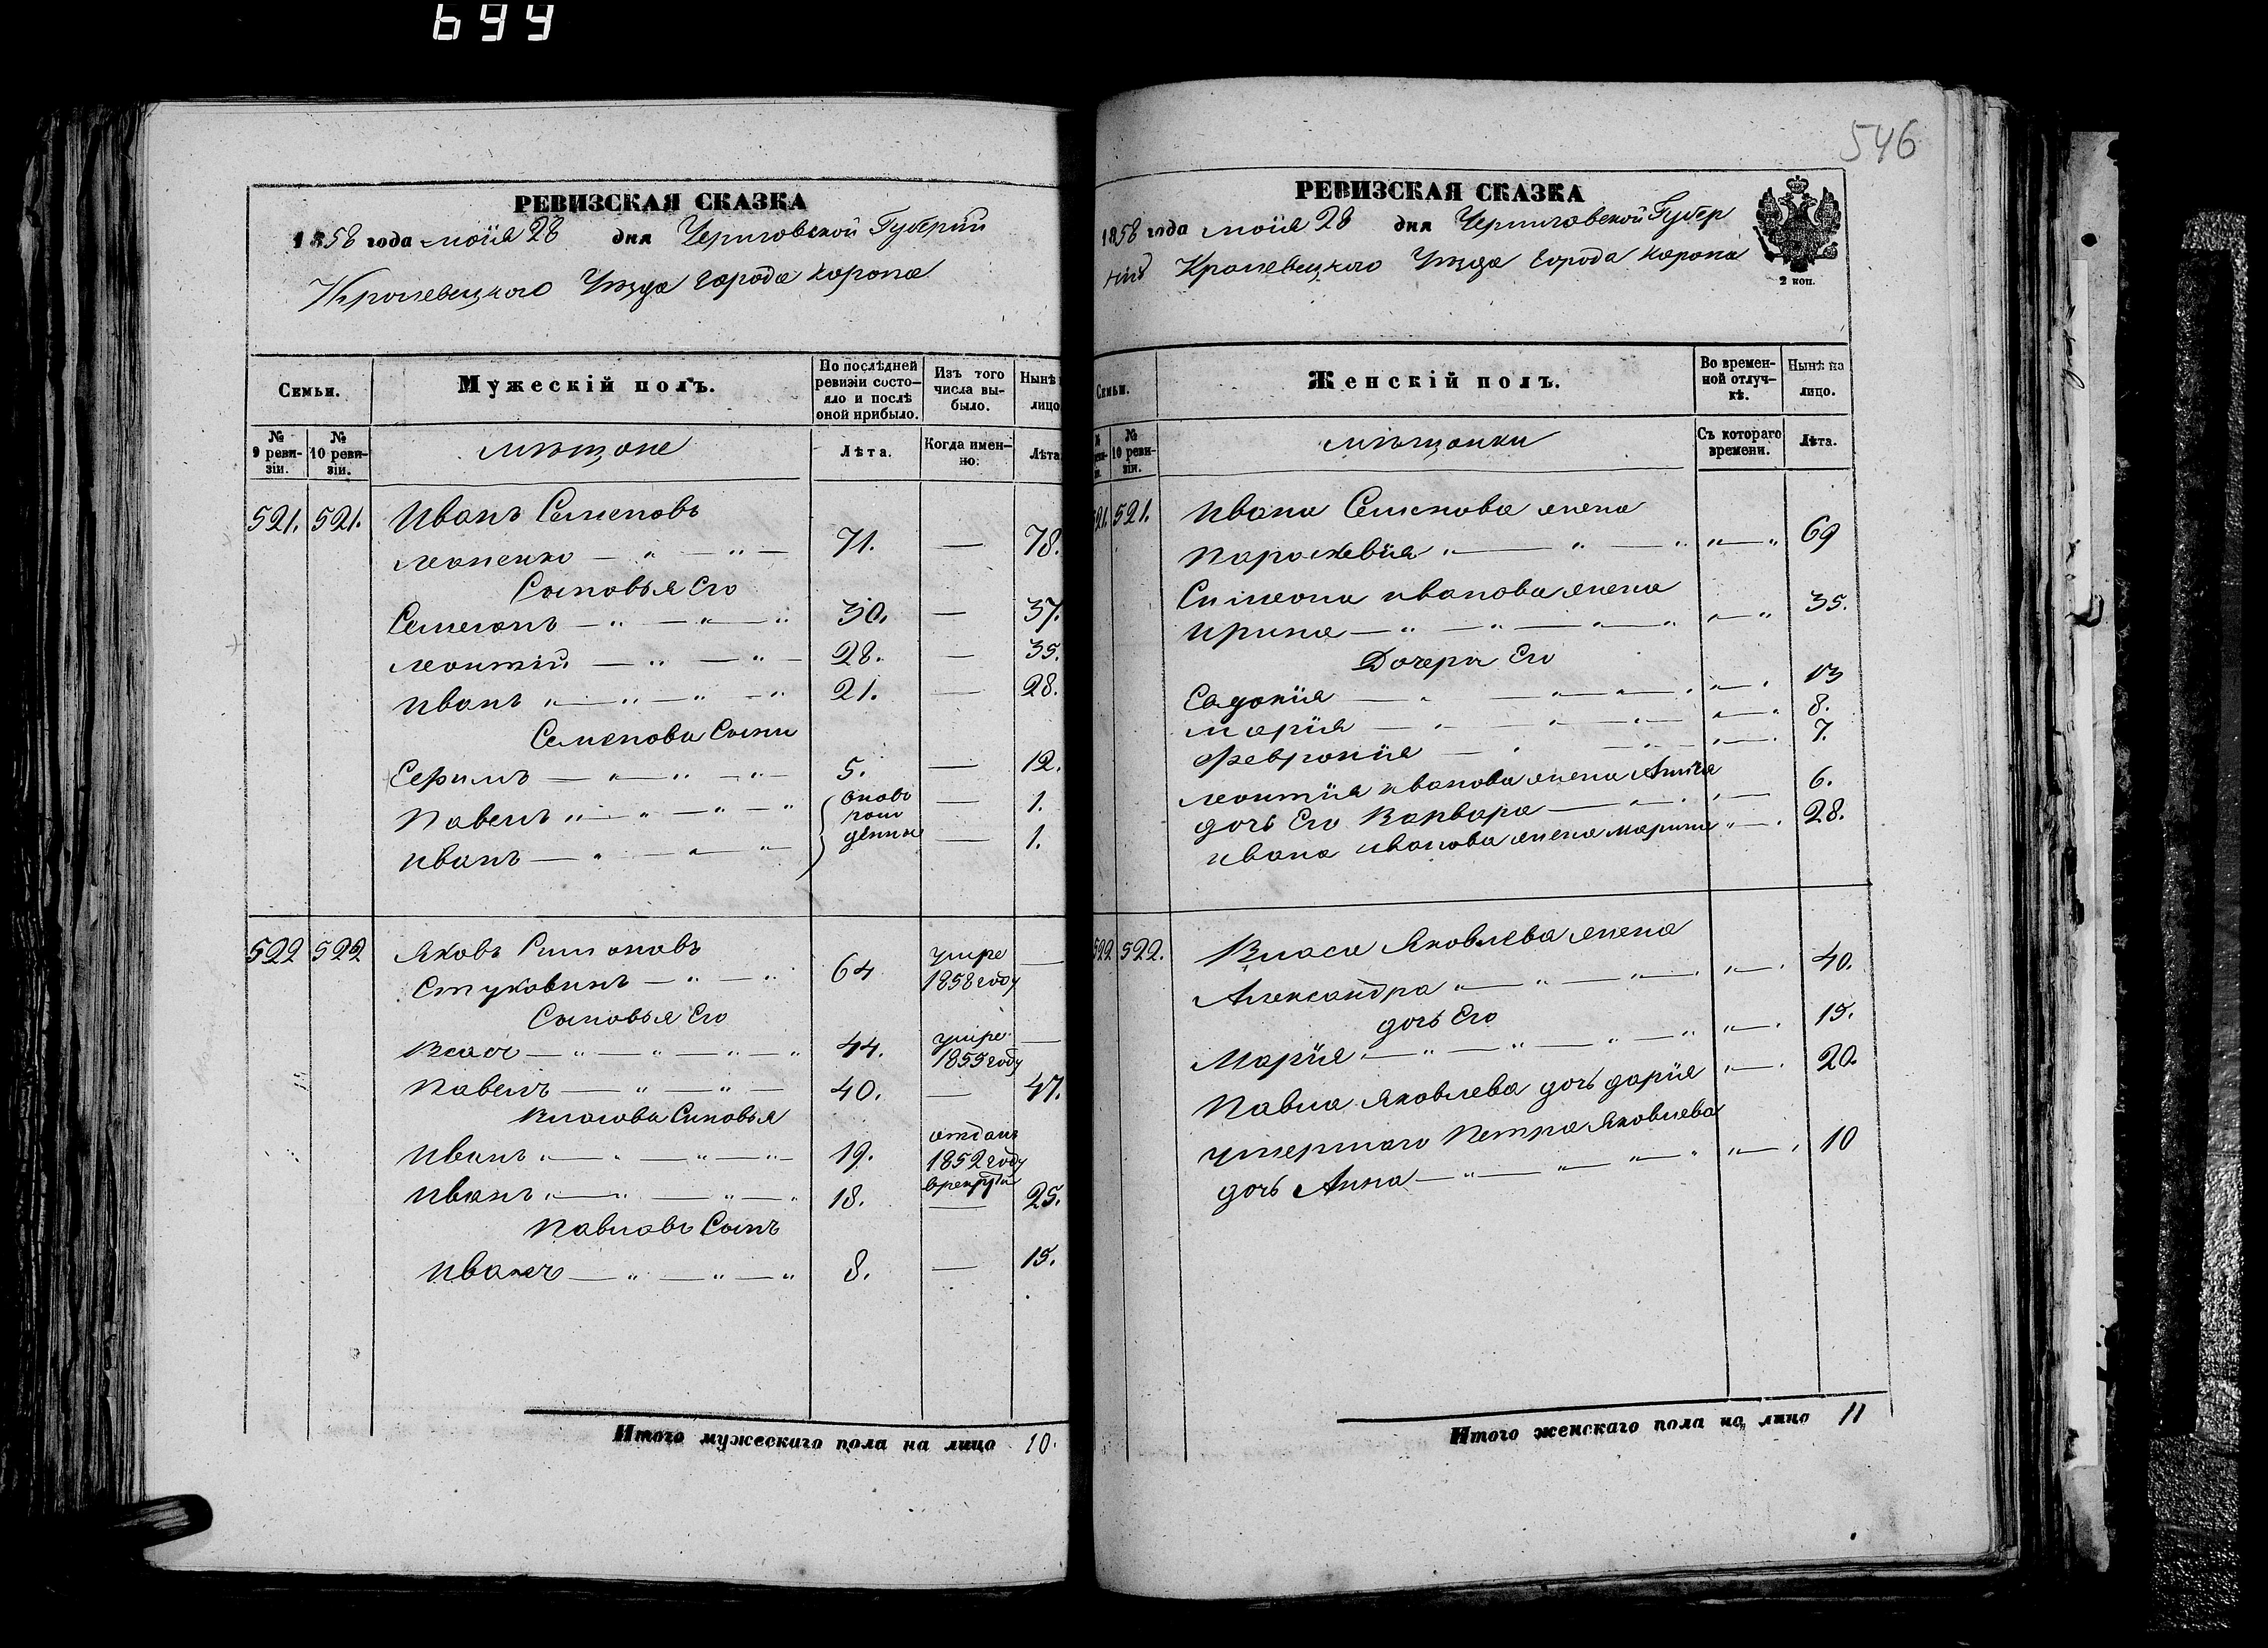 699
546
РЕВИЗСКАЯ СКАЗКА
1858 года маія 28 дня Черниговской Губерніи
Кролевецкого Уѣзда города Коропа
Семьи.
Мужескій полъ.
По послѣдней ревизіи состояло и послѣ оной прибыло.
Изъ того числа выбыло.
Нынѣ
лицо
№ 9 ревизіи.
№ 10 ревизіи.
мѣщане
Лѣта.
Когда именно:
Лѣта
521. 521. Иванъ Семеновъ
— " — " — 71. — 78.
Сыновья Его
Семионъ — " — " — " 30. — 37.
Леонтій — " — " — 28. — 35.
Иванъ " — " — " — " 21. — 28.
Семенова Сыны
Ефимъ — " — " — " — 5. — 12.
Павелъ " — " — " — " оново — 1.
рож
Иванъ — " — " — " денные — 1.
522 522 Яковъ Симоновъ
Стуковинъ — " — " 64 умре 1858 году —
Сыновья Его
Власъ — " — " — " — " 44. умре 1855 году —
Павелъ — " — " — 40. — 47.
Власова Сыновья
Иванъ " — " — " — " — 19. отданъ 1852 году врекруты
Иванъ " — " — " — " 18. — 25.
Павловъ Сынъ
Иванъ — " — " — " 8. — 15.
Итого мужескаго пола на лицо 10.
РЕВИЗСКАЯ СКАЗКА
1858 года маія 28 дня Черниговской Губер
ніи Кролевецкого Уѣзда города Коропа
2 коп.
Семьи.
Женскій полъ.
Во временной отлучкѣ.
Нынѣ на лицо.
№ 10 ревизіи.
мѣщанки
Съ котораго времени.
Лѣта.
521. 521. Ивана Семенова жена
Параскевія " — " — " " — " 69
Симеона Иванова жена
Ирина — " — " — " — " " — " 35.
Дочери Его
Евдокія — " — " — " — " " — " 13
Марія — " — " — " — " — " 8.
Феврокія — " — " — " — " 7.
Леонтія Иванова жена Анна
дочь Его Варвара — " — " " — 6.
Ивана Иванова жена Марина " — " 28.
522 522. Власа Яковлева жена
Александра " — " — " — " " — " 40.
дочь Его
Марія " — " — " — " — " " — " 15.
Павла Яковлева дочь Дарія " — " 20.
умершаго Петра Яковлева
дочь Анна — " — " — " — " " — " 10
Итого женскаго пола на лицо 11